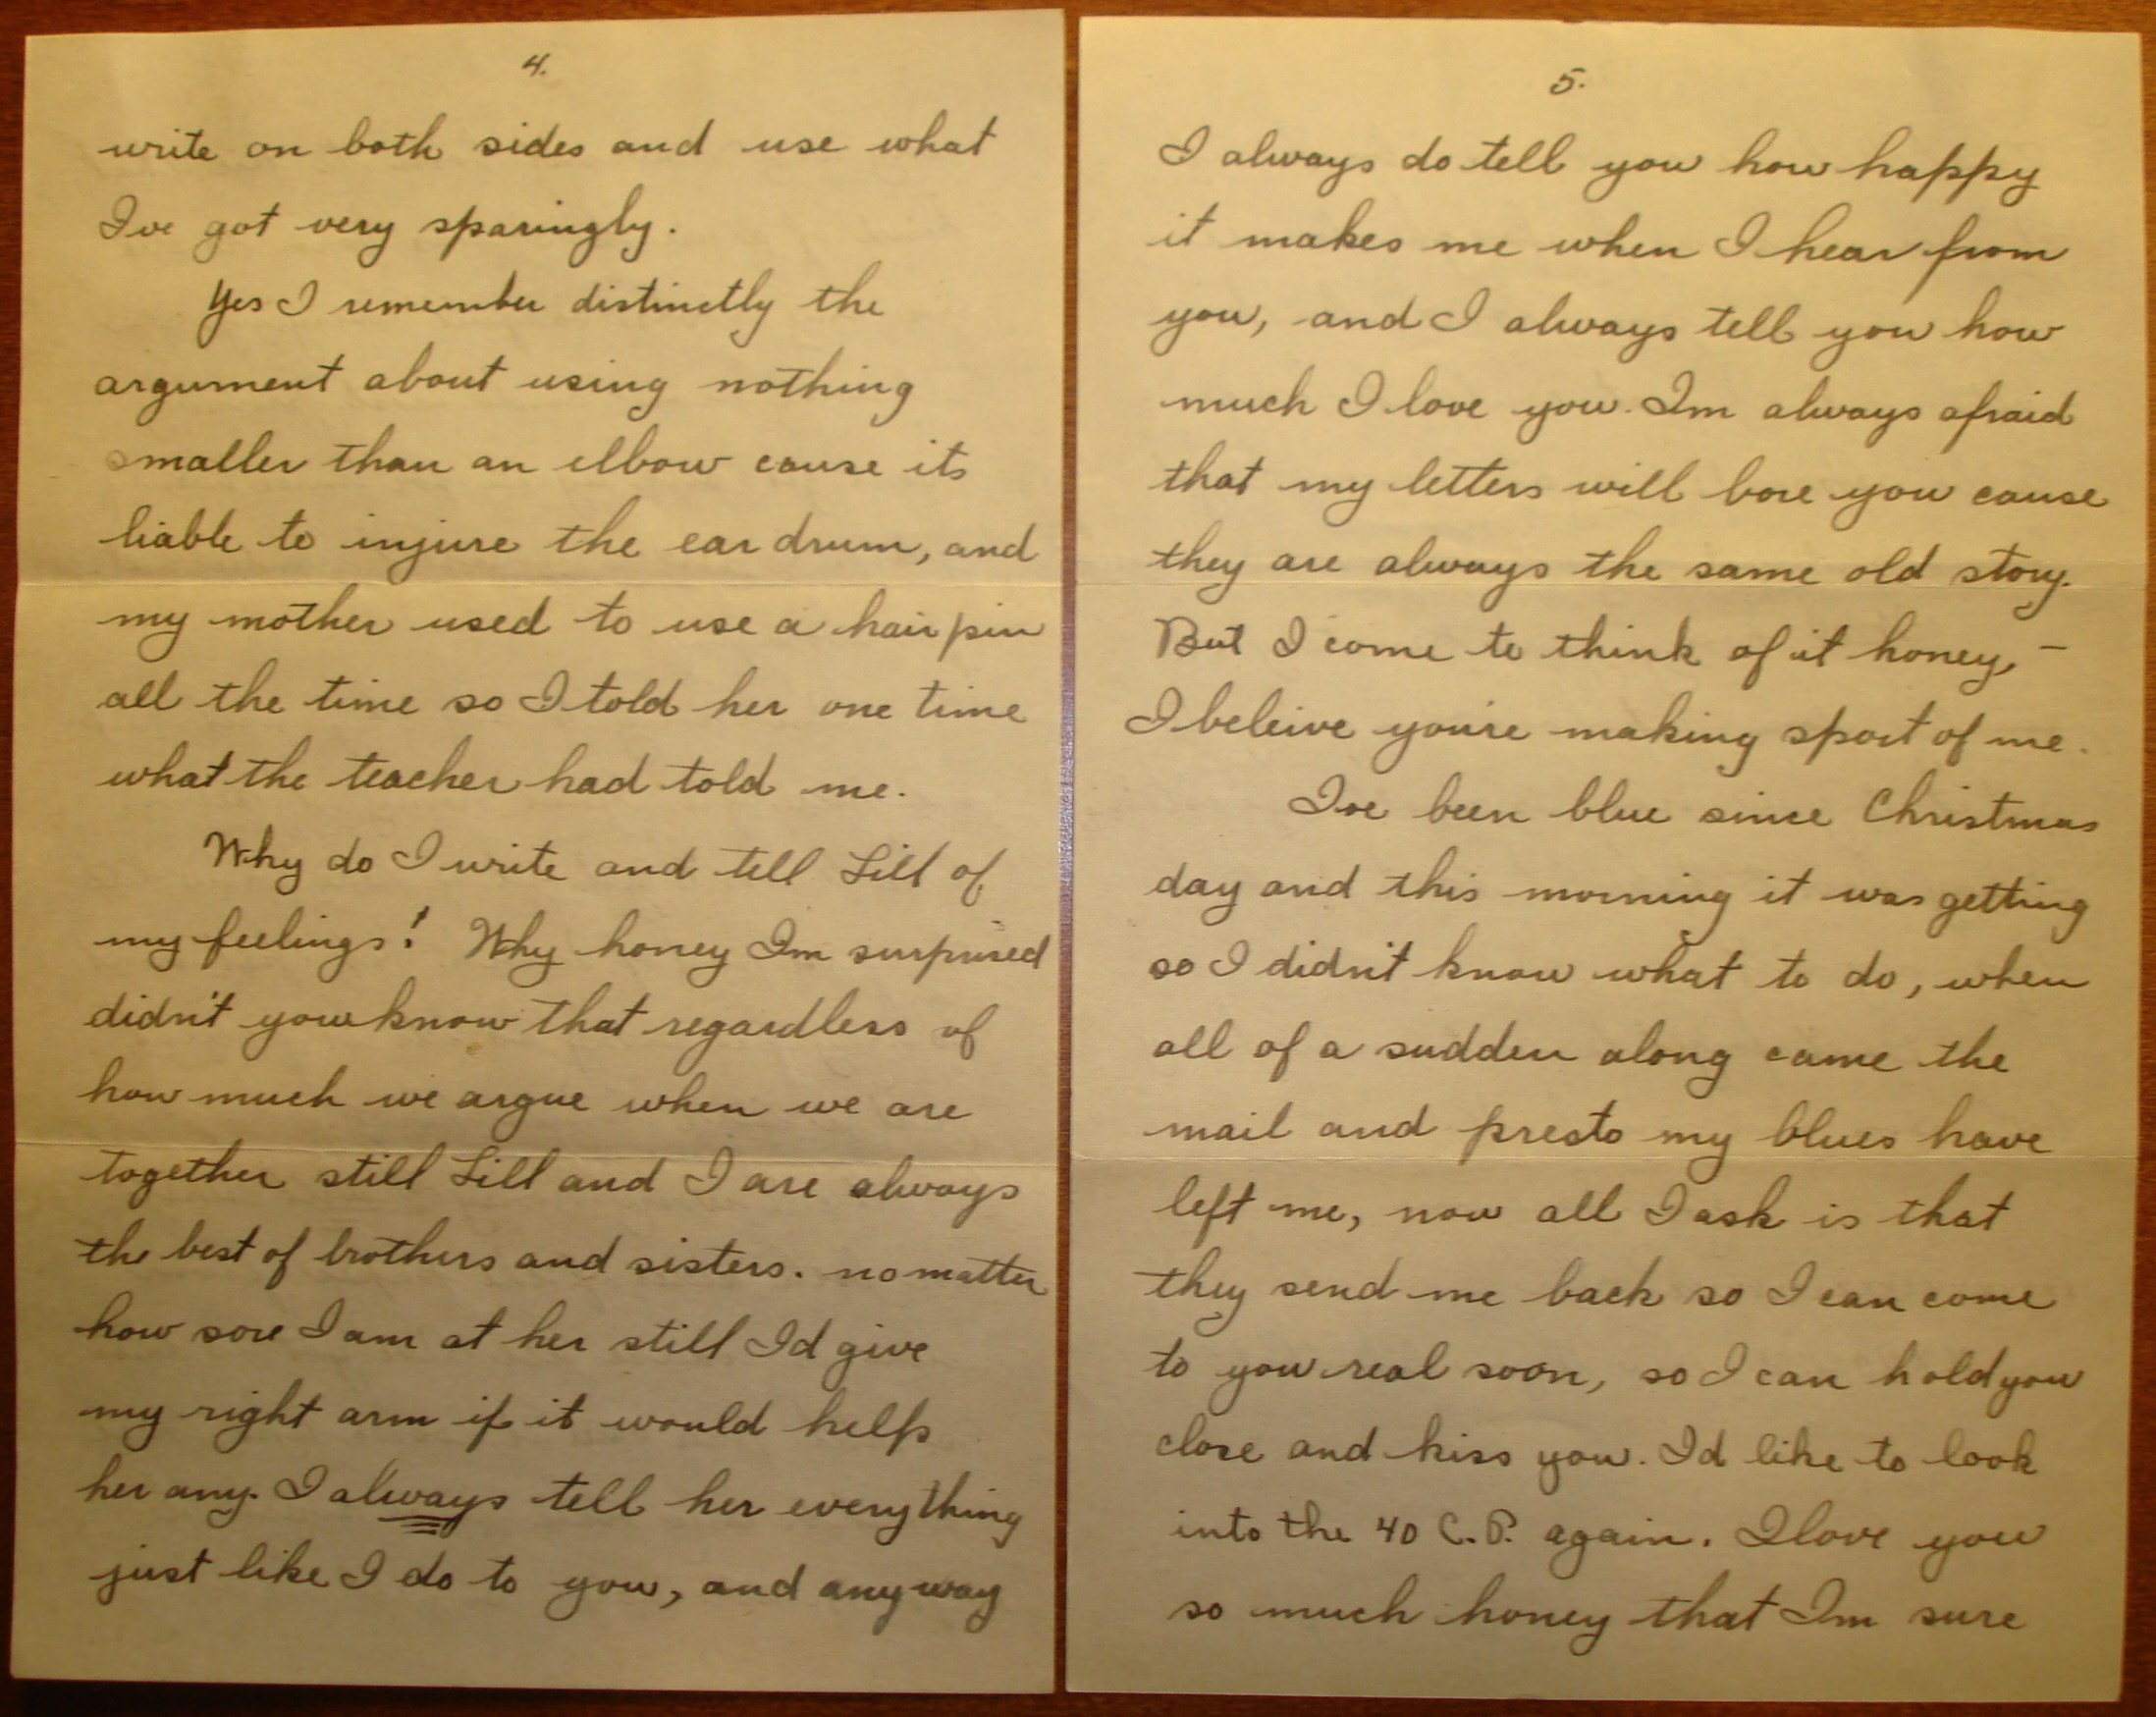 4.
write on both sides and use what
I've got very sparingly.
Yes I remember distinctly the
argument about using nothing
smaller than an elbow cause its
liable to injure the ear drum, and
my mother used to use a hair pin
all the time so I told her one time
what the teacher had told me.
Why do I write and tell Lill of
my feelings! Why honey Im surprised
didn't you know that regardless of
how much we argue when we are
together still Lill and I are always
the best of brothers and sisters. no matter
how sore I am at her still Id give
my right arm if it would help
her any. I always tell her everything
just like I do to you, and anyway
5.
I always do tell you how happy
it makes me when I hear from
you, and I always tell you how
much I love you. Im always afraid
that my letters will bore you cause
they are always the same old story.
But I come to think of it honey, –
I beleive you're making sport of me.
I've been blue since Christmas
day and this morning it was getting
so I didn't know what to do, when
all of a sudden along came the
mail and presto my blues have
left me, now all I ask is that
they send me back so I can come
to you real soon, so I can hold you
close and kiss you. I'd like to look
into the 40 C.P. again. I love you
so much honey that I'm sure